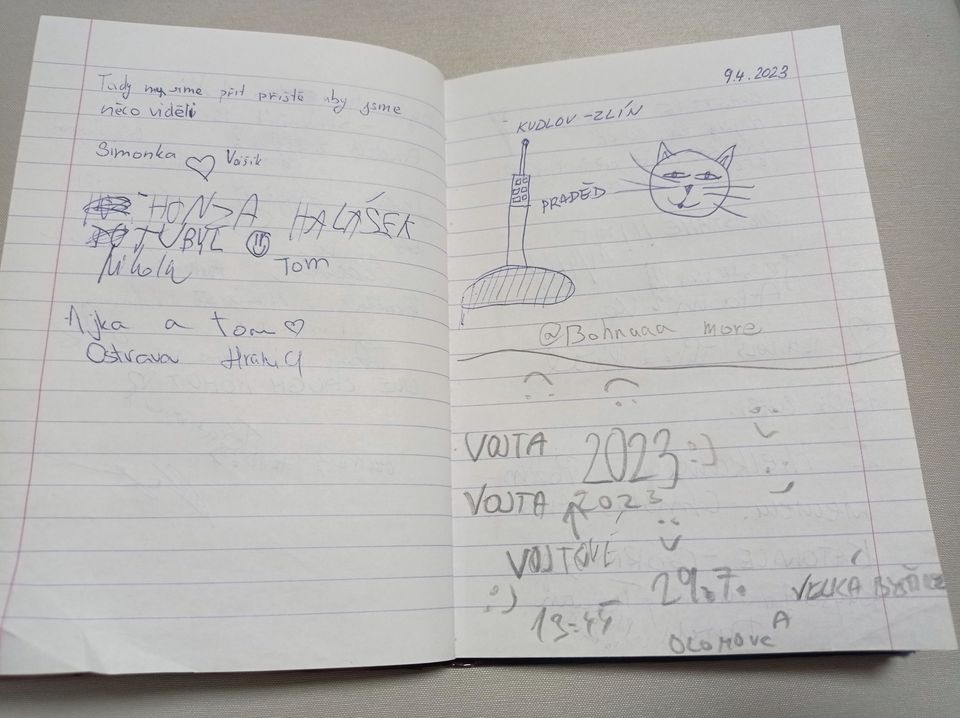 Tudy musíme přít příště aby jsme
něco viděli
Simonka Vašík
HONZA HALÁŠEK
TU BYL
Nikola TOM
Ajka a tom
Ostrava
9.4.2023
KUDLOV-ZLÍN
PRADĚD
@Bohnaaa more
VOJTA 2023 :)
VOJTA 2023
VOJTOVÉ
:) 29.7. VELKÁ
13:45
OLOMOUC A